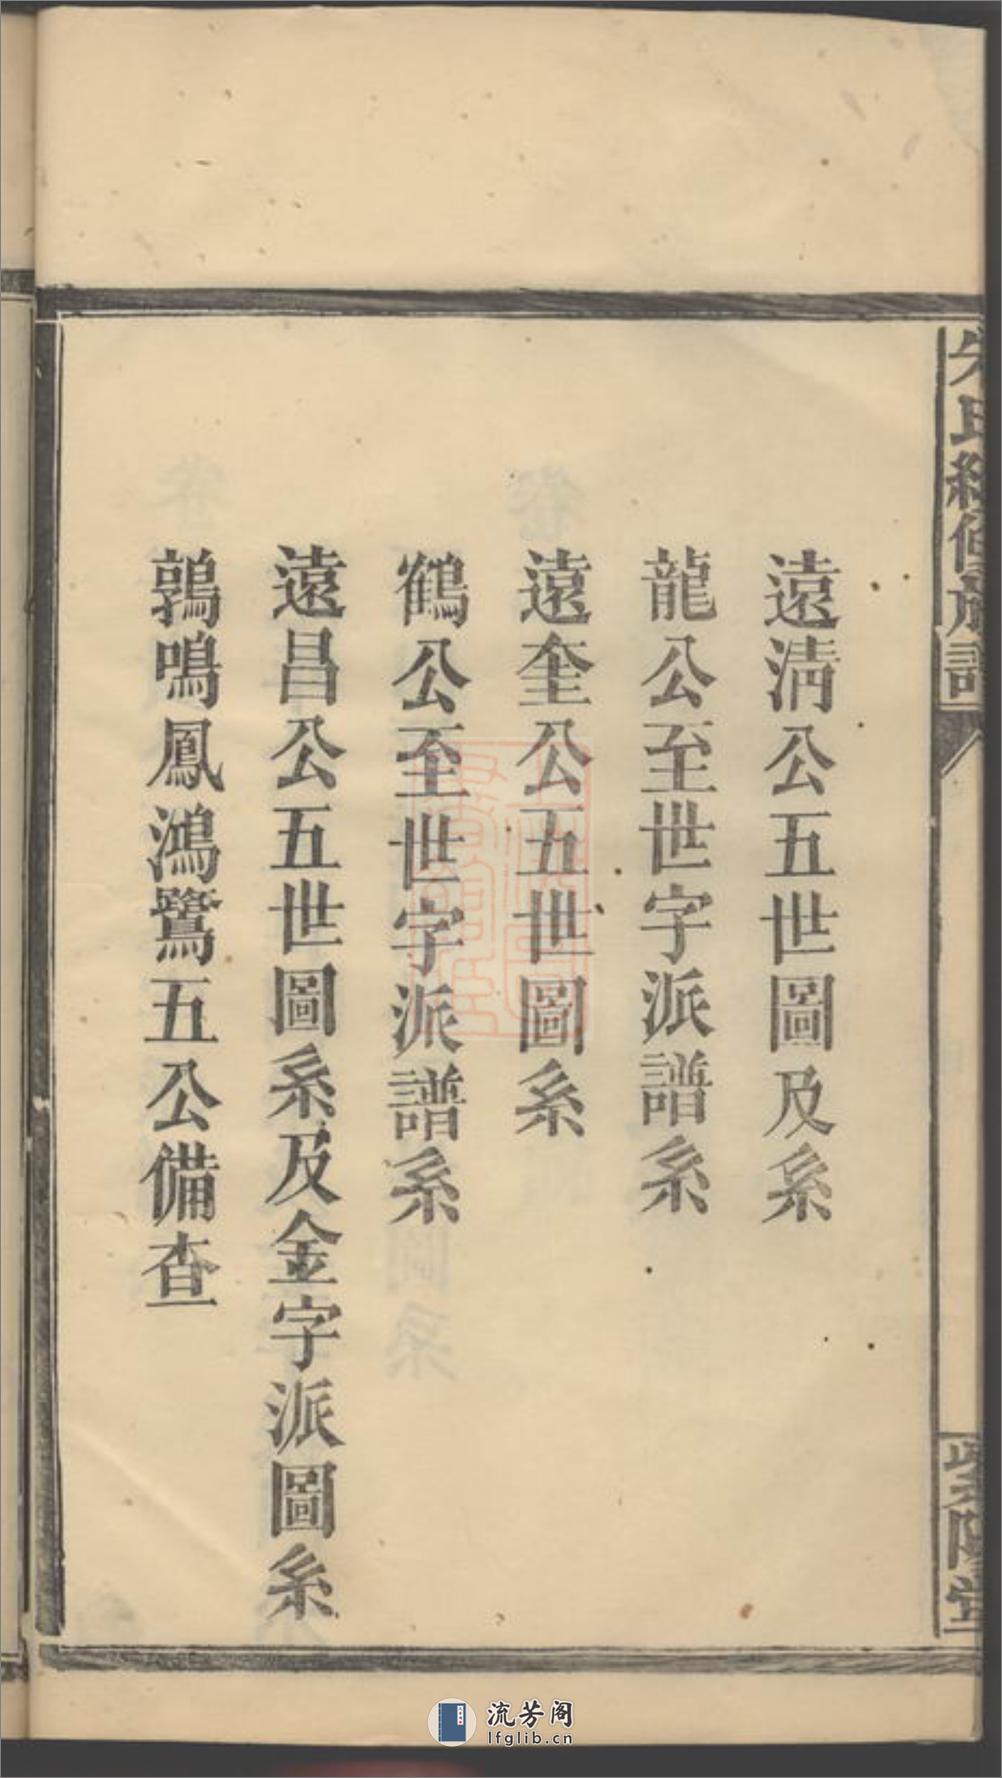 朱氏續修族譜
紫陽堂
遠淸公五世圖及系
龍公至世字派譜系
遠奎公五世圖系
鶴公至世字派譜系
遠昌公五世圖系及金字派圖系
鶉鳴鳳鴻鷺五公備查
流芳阁
lfglib.cn